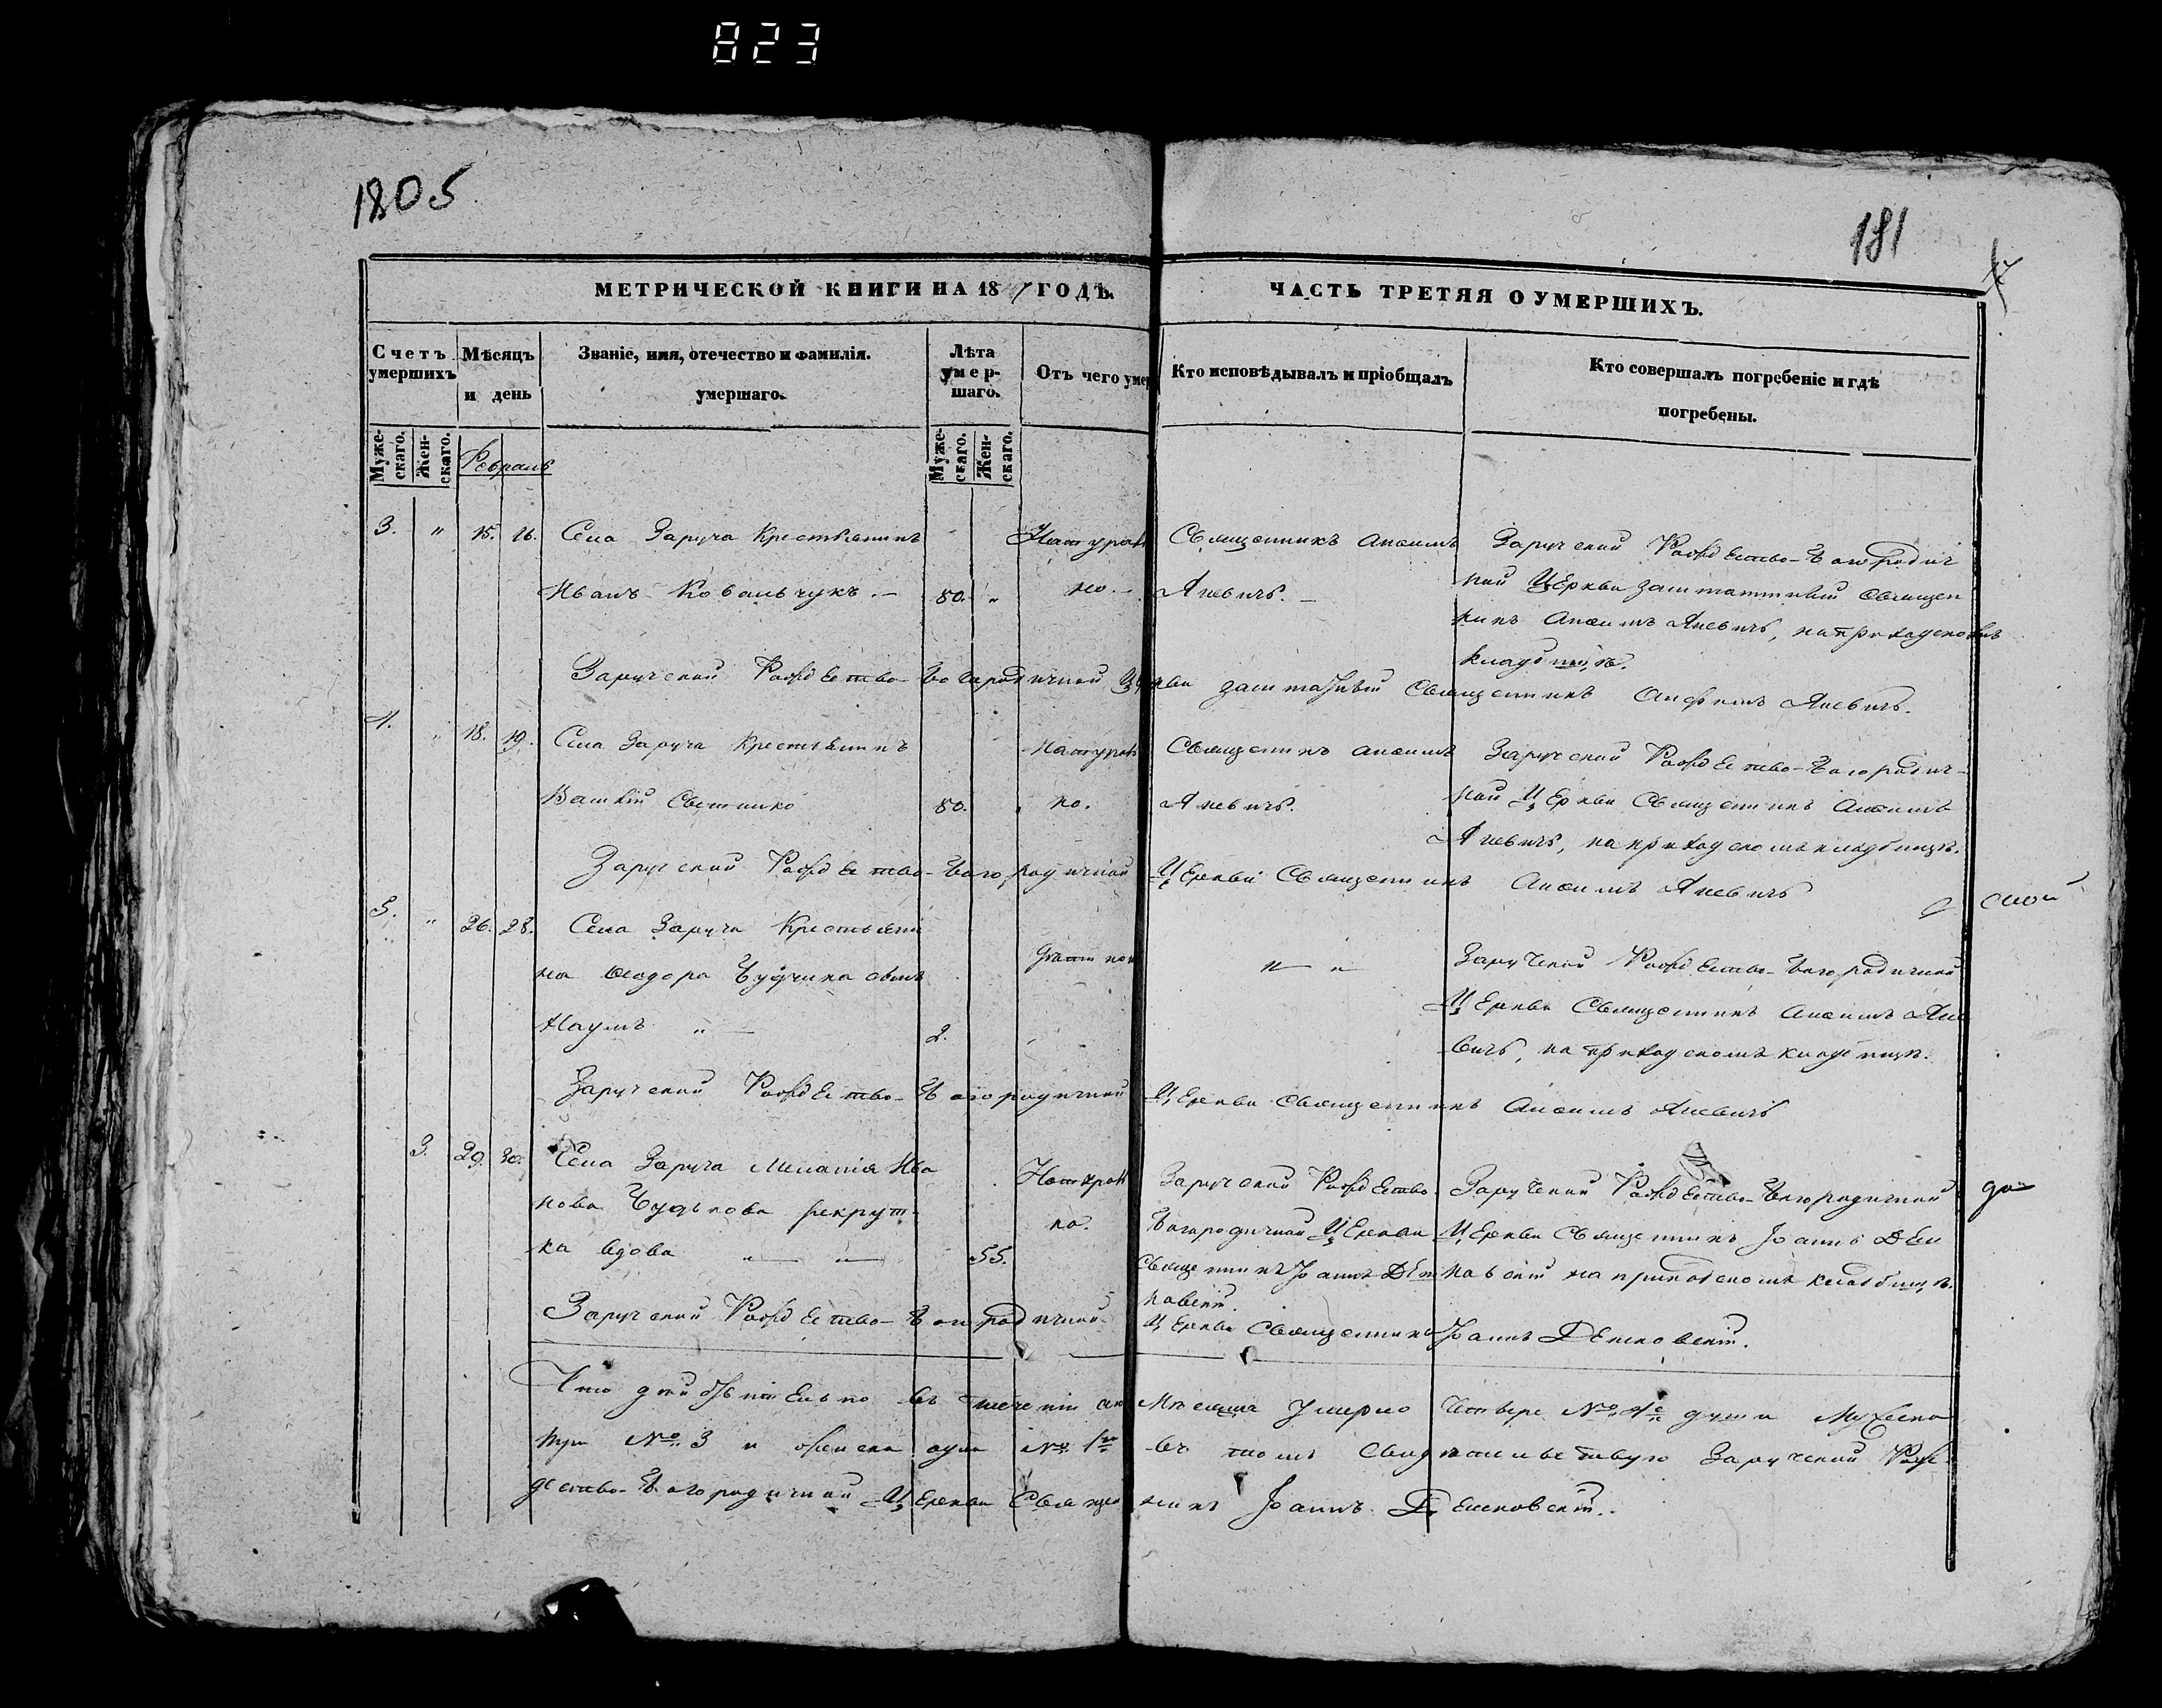 823
1805
181
МЕТРИЧЕСКОЙ КНИГИ НА 18 7 ГОДЪ.
ЧАСТЬ ТРЕТЯЯ О УМЕРШИХЪ.
Счетъ умершихъ
Мѣсяцъ и день
Званіе, имя, отечество и фамилія.
умершаго.
Лѣта умер-
шаго.
Отъ чего умер
Кто исповѣдывалъ и пріобщалъ
Кто совершалъ погребеніе и гдѣ
погребены.
Муже-
скаго.
Жен-
скаго.
Февраль
Муже-
скаго.
Жен-
скаго.
3. " 15. 16. Села Заруча Крестьянинъ
Иванъ Ковальчукъ. — 80. "
Натураль
но.
Священникъ Анѳимъ
Яневичъ. —
Заручской Рождество-Богородич
ной Церкви заштатный Священ
никъ Анѳимъ Яневичъ, на приходскомъ
кладбищѣ.
Заручской Рождество-Богородичной Церкви заштатный Священникъ Анфимъ Яневичъ.
4. " 18. 19. Села Заруча Крестьянинъ
80.
Натураль
но.
Священникъ Анѳимъ
Яневичъ.
Заручской Рождество-Богородич-
ной Церкви Священникъ Анѳимъ
Яневичъ, на приходскомъ кладбищѣ.
Заручской Рождество-Богородичной Церкви Священникъ Анѳимъ Яневичъ
5. " 26. 28. Села Заруча Крестьяни
на Ѳеодора сынъ
Наумъ " — 2.
" — "
Заручской Рождество-Богородичной
Церкви Священникъ Анѳимъ Яне
вичъ, на приходскомъ кладбищѣ.
Заручской Рождество-Богородичной Церкви Священникъ Анѳимъ Яневичъ
3. 29. 30. Села Заруча Меланія Ива
нова рекрут-
ка вдова " — " — 55.
Натураль
но.
Заручской Рождество-
Богородичной Церкви
Священникъ Іоаннъ
Заручской Рождество-Богородичной
Церкви Священникъ Іоаннъ
на приходскомъ кладбищѣ.
Заручской Рождество-Богородичной Церкви Священникъ Іоаннъ
Что дѣйствительно въ теченіи Мѣсяца Умерло Четыре № 4е души Мужеска
три № 3 и женска одна № 1я въ томъ Свидѣтельствую Заручской Рож
дество-Богородичной Церкви Священникъ Іоаннъ